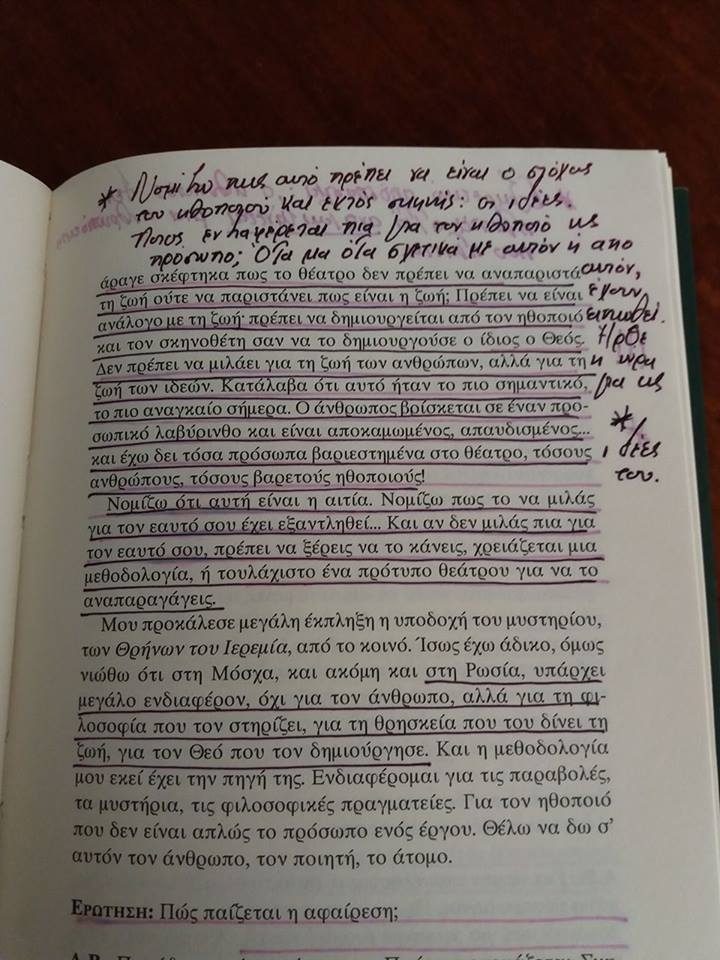 * Νομίζω πως αυτό πρέπει να είναι ο στόχος
του ηθοποιού και εκτός σκηνής: οι ιδέες.
Ποιος ενδιαφέρεται πια για τον ηθοποιό ως
πρόσωπο; Όλα μα όλα σχετικά με αυτόν ή από
αυτόν,
έχουν
ειπωθεί.
Ήρθε
η ώρα
για τις
*
ιδέες
του.
άραγε σκέφτηκα πως το θέατρο δεν πρέπει να αναπαριστά
τη ζωή ούτε να παριστάνει πως είναι η ζωή; Πρέπει να είναι
ανάλογο με τη ζωή· πρέπει να δημιουργείται από τον ηθοποιό
και τον σκηνοθέτη σαν να το δημιουργούσε ο ίδιος ο Θεός.
Δεν πρέπει να μιλάει για τη ζωή των ανθρώπων, αλλά για τη
ζωή των ιδεών. Κατάλαβα ότι αυτό ήταν το πιο σημαντικό,
το πιο αναγκαίο σήμερα. Ο άνθρωπος βρίσκεται σε έναν προ-
σωπικό λαβύρινθο και είναι αποκαμωμένος, απαυδισμένος...
και έχω δει τόσα πρόσωπα βαριεστημένα στο θέατρο, τόσους
ανθρώπους, τόσους βαρετούς ηθοποιούς!
Νομίζω ότι αυτή είναι η αιτία. Νομίζω πως το να μιλάς
για τον εαυτό σου έχει εξαντληθεί... Και αν δεν μιλάς πια για
τον εαυτό σου, πρέπει να ξέρεις να το κάνεις, χρειάζεται μια
μεθοδολογία, ή τουλάχιστο ένα πρότυπο θεάτρου για να το
αναπαραγάγεις.
Μου προκάλεσε μεγάλη έκπληξη η υποδοχή του μυστηρίου,
των Θρήνων του Ιερεμία, από το κοινό. Ίσως έχω άδικο, όμως
νιώθω ότι στη Μόσχα, και ακόμη και στη Ρωσία, υπάρχει
μεγάλο ενδιαφέρον, όχι για τον άνθρωπο, αλλά για τη φι-
λοσοφία που τον στηρίζει, για τη θρησκεία που του δίνει τη
ζωή, για τον Θεό που τον δημιούργησε. Και η μεθοδολογία
μου εκεί έχει την πηγή της. Ενδιαφέρομαι για τις παραβολές,
τα μυστήρια, τις φιλοσοφικές πραγματείες. Για τον ηθοποιό
που δεν είναι απλώς το πρόσωπο ενός έργου. Θέλω να δω σ'
αυτόν τον άνθρωπο, τον ποιητή, το άτομο.
ΕΡΩΤΗΣΗ: Πώς παίζεται η αφαίρεση;